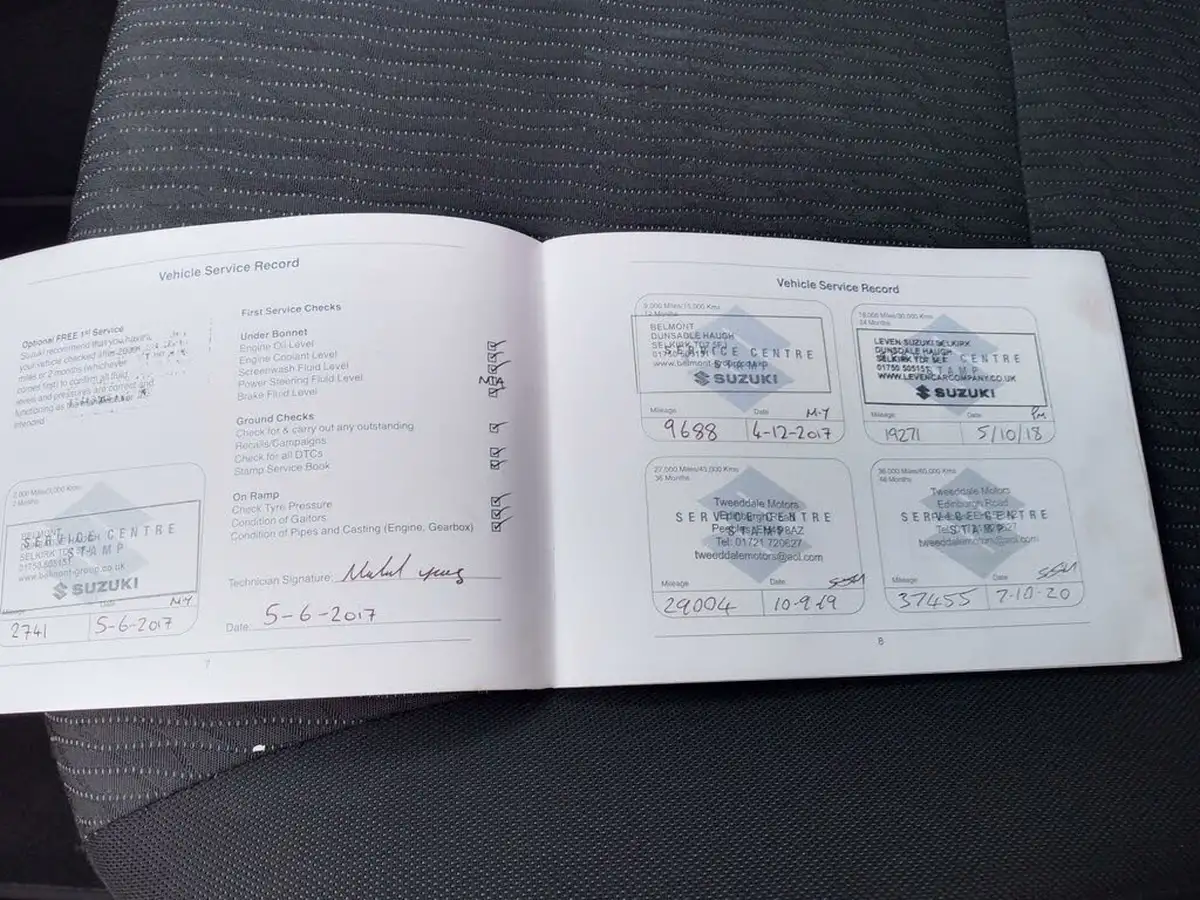 Vehicle Service Record
Optional FREE 1st Service
Suzuki recommend that you have
your vehicle checked after 2000
miles or 2 months (whichever
comes first) to confirm all fluid
levels and pressures are correct and
functioning as the
intended
First Service Checks
Under Bonnet
Engine Oil Level
Engine Coolant Level
Screenwash Fluid Level
Power Steering Fluid Level
Brake Fluid Level
Ground Checks
Check for & carry out any outstanding
Recalls/Campaigns
Check for all DTCs
Stamp Service Book
On Ramp
Check Tyre Pressure
Condition of Gaitors
Condition of Pipes and Casting (Engine, Gearbox)
Technician Signature:
Date: 5-6-2017
2,000 Miles/3,000 Kms
2 Months
BELMONT
SERVICE CENTRE
STAMP
01750 505151
www.belmont-group.co.uk
SUZUKI
Date
M-Y
2741
5-6-2017
7
Vehicle Service Record
9,000 Miles/15,000 Kms
12 Months
BELMONT
DUNSDALE HAUGH
SELKIRK TD7 5EJ
SERVICE CENTRE
SUZUKI
Mileage
Date
M-Y
9688
4-12-2017
18,000 Miles/30,000 Kms
24 Months
LEVEN SUZUKI SELKIRK
DUNSDALE HAUGH
SELKIRK TD7
CENTRE
01750 505151
STAMP
WWW.LEVENCARCOMPANY.CO.UK
SUZUKI
Mileage
Date
19271
5/10/18
27,000 Miles/45,000 Kms
36 Months
Tweeddale Motors
Edinburgh Road
SERVICE CENTRE
STAMP
Tel: 01721 720627
tweeddalemotors@aol.com
Mileage
Date
29004
10-9-19
36,000 Miles/60,000 Kms
48 Months
Tweeddale Motors
Edinburgh Road
SERVICE CENTRE
STAMP
tweeddalemotors@aol.com
Mileage
Date
37455
7-10-20
8